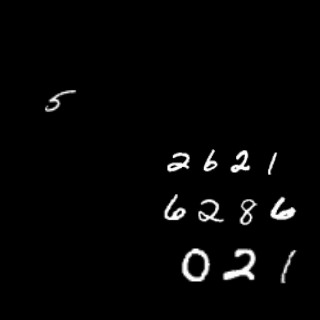 5
2621
6286
021